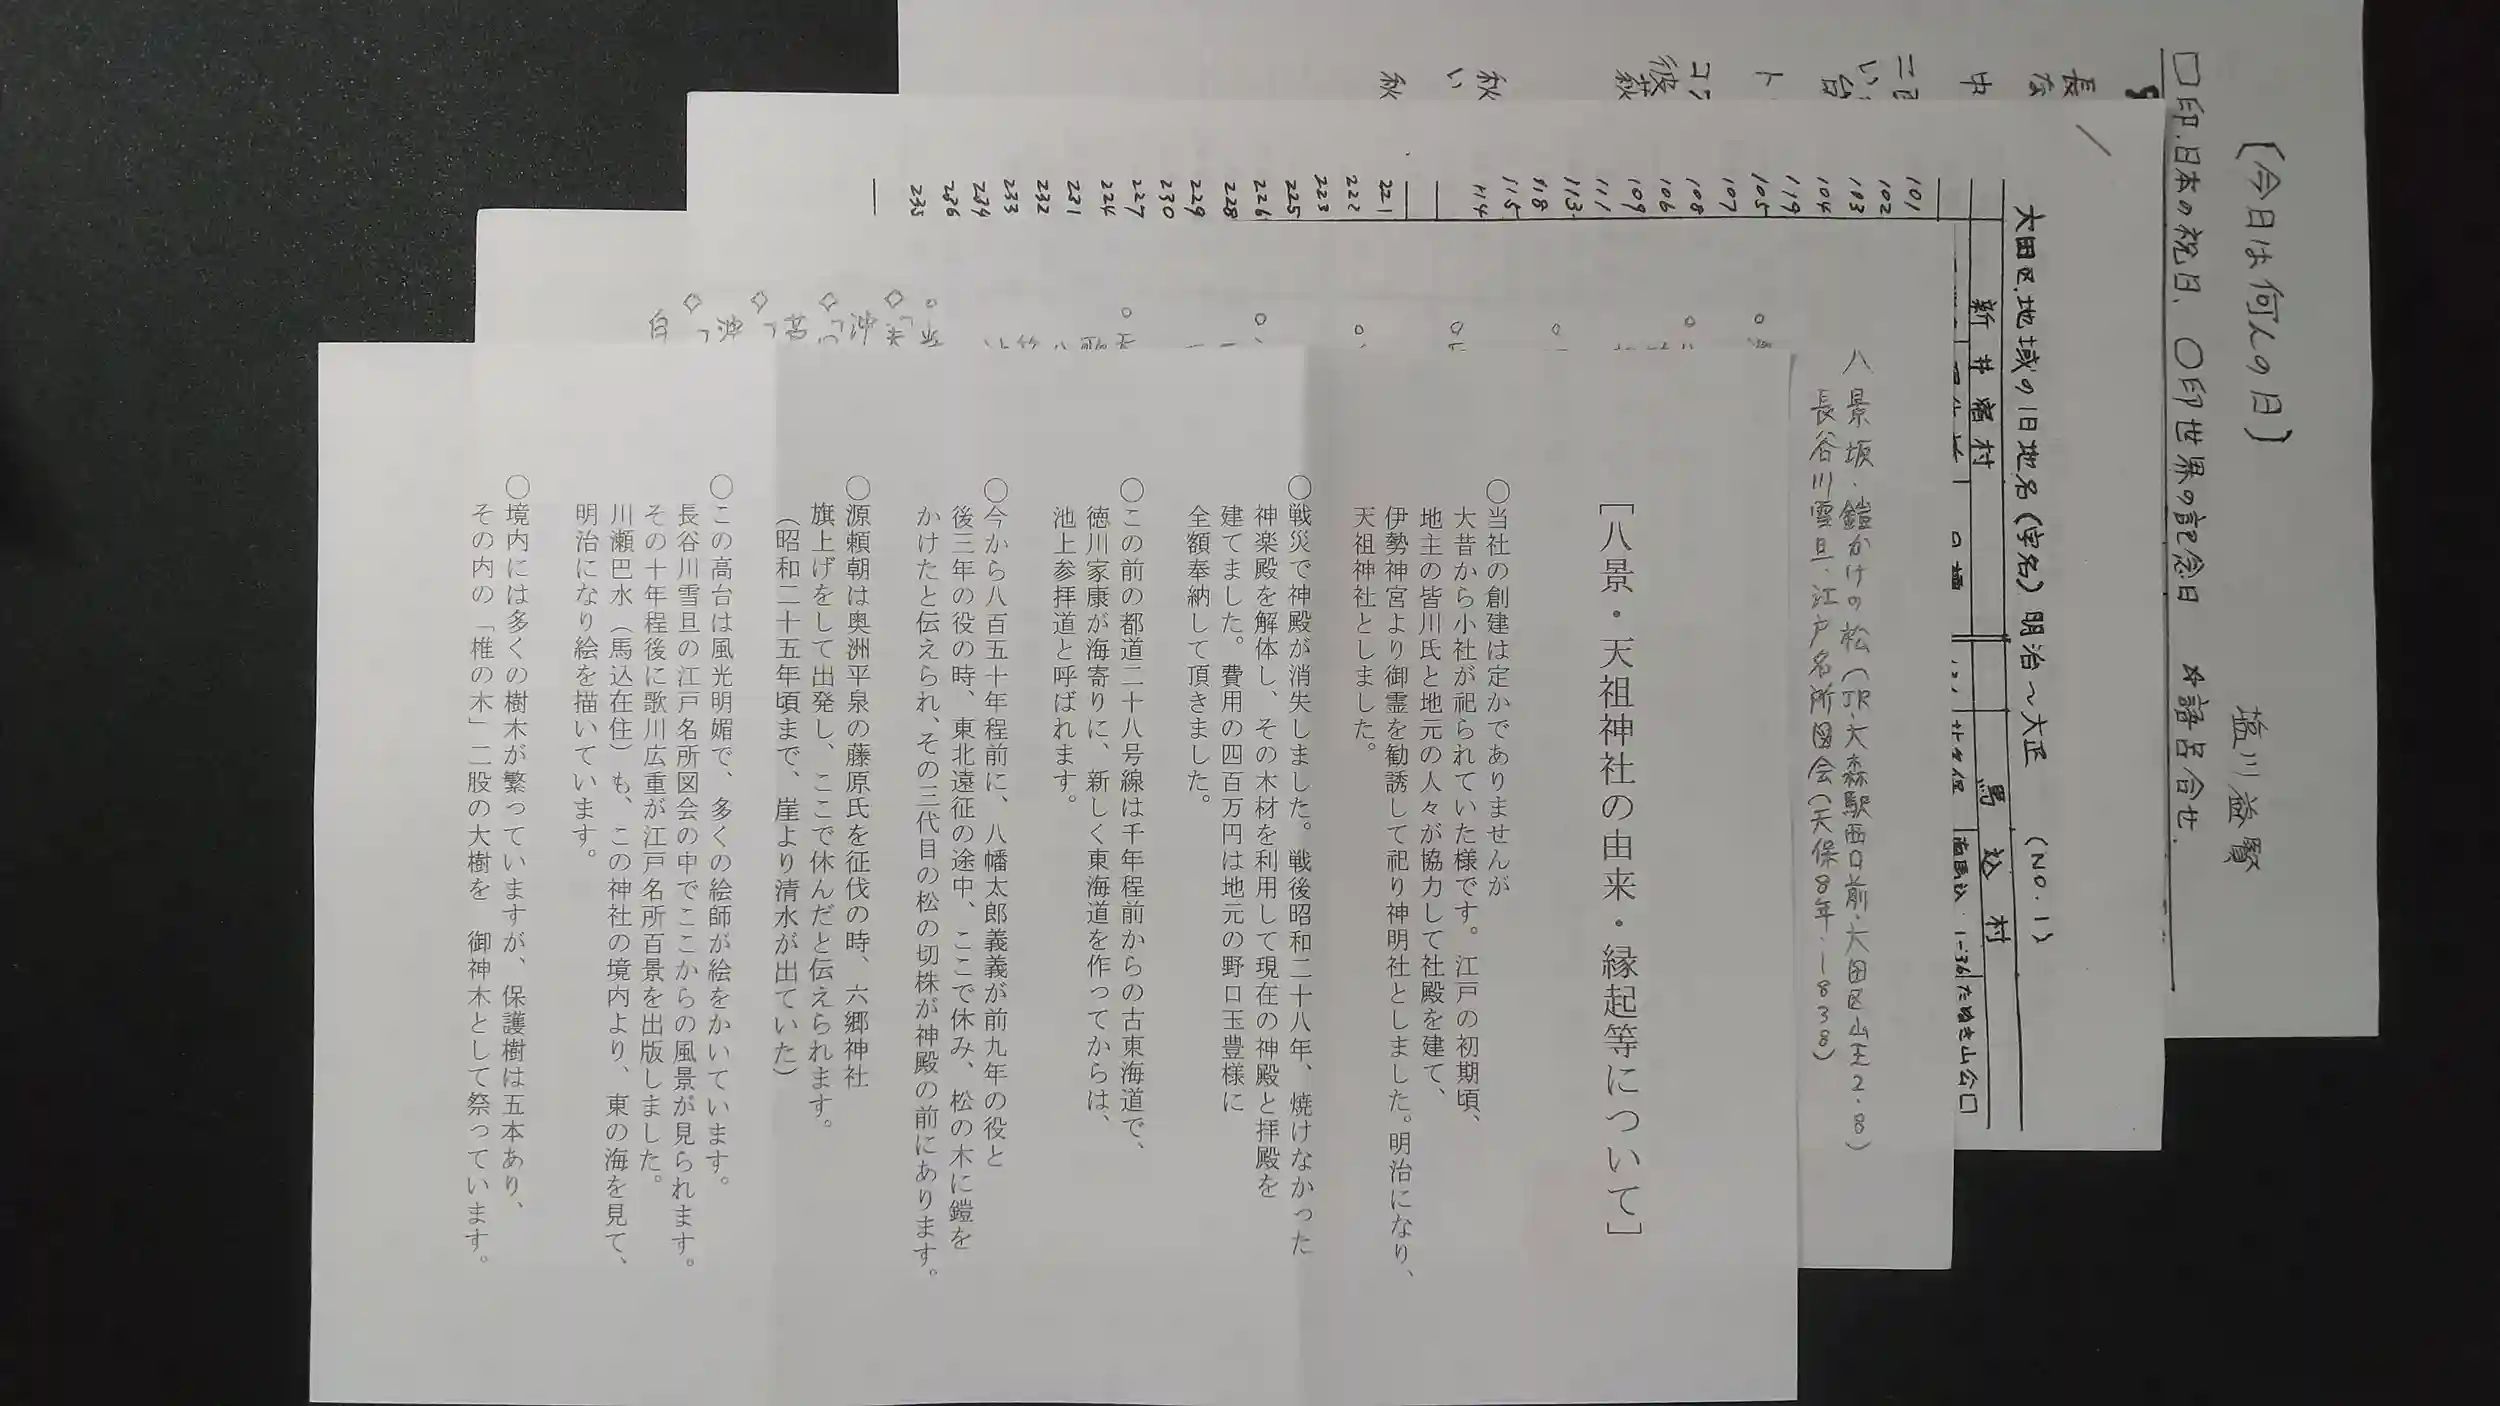 [八景・天祖神社の由来・縁起等について]
〇当社の創建は定かでありませんが
大昔から小社が祀られていた様です。江戸の初期頃、
地主の皆川氏と地元の人々が協力して社殿を建て、
伊勢神宮より御霊を勧誘して祀り神明社としました。明治になり、
天祖神社としました。
〇戦災で神殿が消失しました。戦後昭和二十八年、焼けなかった
神楽殿を解体し、その木材を利用して現在の神殿と拝殿を
建てました。費用の四百万円は地元の野口玉豊様に
全額奉納して頂きました。
〇この前の都道二十八号線は千年程前からの古東海道で、
徳川家康が海寄りに、新しく東海道を作ってからは、
池上参拝道と呼ばれます。
〇今から八百五十年程前に、八幡太郎義義が前九年の役と
後三年の役の時、東北遠征の途中、ここで休み、松の木に鎧を
かけたと伝えられ、その三代目の松の切株が神殿の前にあります。
〇源頼朝は奥洲平泉の藤原氏を征伐の時、六郷神社
旗上げをして出発し、ここで休んだと伝えられます。
(昭和二十五年頃まで、崖より清水が出ていた)
〇この高台は風光明媚で、多くの絵師が絵をかいています。
長谷川雪旦の江戸名所図会の中でここからの風景が見られます。
その十年程後に歌川広重が江戸名所百景を出版しました。
川瀬巴水(馬込在住)も、この神社の境内より、東の海を見て、
明治になり絵を描いています。
〇境内には多くの樹木が繁っていますが、保護樹は五本あり、
その内の「椎の木」二股の大樹を 御神木として祭っています。
八景坂・鎧かけの松(JR・大森駅西口前・大田区山王2.8)
長谷川雪旦・江戸名所図会(天保8年・1838)
大田区.地域の旧地名(字名)明治〜大正 (NO.1)
新井宿村
馬込村
南馬込 1-36 たぬき山公口
101
102
103
104
119
105
107
108
106
109
111
113
118
115
114
221
222
223
225
226
228
229
230
227
224
231
232
233
234
236
235
(今日は何人の日)
塩川益賢
□印.日本の祝日、〇印世界の記念日 ☆語呂合せ.